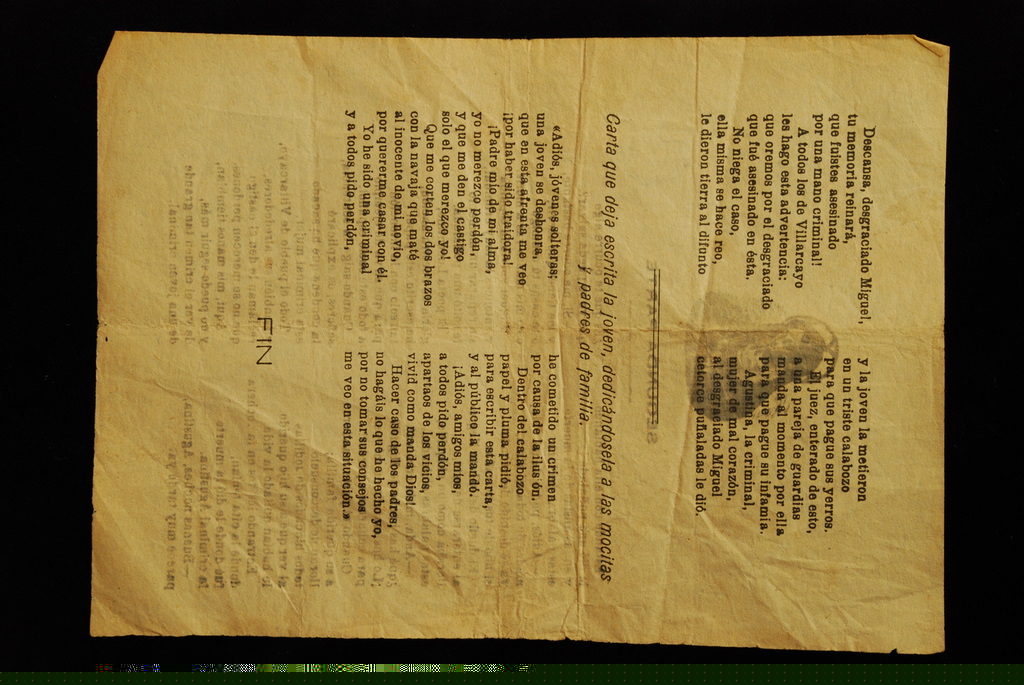 Descansa, desgraciado Miguel,
tu memoria reinará,
que fuistes asesinado
por una mano criminal!
A todos los de Villarcayo
les hago esta advertencia:
que oremos por el desgraciado
que fué asesinado en ésta.
No niega el caso,
ella misma se hace reo,
le dieron tierra al difunto
y la joven la metieron
en un triste calabozo
para que pague sus yerros.
El juez, enterado de esto,
a una pareja de guardias
manda al momento por ella
para que pague su infamia.
Agustina, la criminal,
mujer de mal corazón,
al desgraciado Miguel
catorce puñaladas le dió.
Carta que deja escrita la joven, dedicándosela a las mocitas
y padres de familia.
«Adiós, jóvenes solteras;
una joven se desbonra,
que en esta afrenta me veo
¡por haber sido traidora!
¡Padre mío de mi alma,
yo no merezco perdón,
y que me den el castigo
solo el que merezco yo!
Que me corten los dos brazos
con la navaja que maté
al inocente de mi novio,
por quererme casar con él.
Yo he sido una criminal
y a todos pido perdón,
he cometido un crimen
por causa de la ilus ón.
Dentro del calabozo
papel y pluma pidió,
para escribir esta carta,
y al público la mandó.
¡Adiós, amigos míos,
a todos pido perdón,
apartaos de los vicios,
vivid como manda Dios!
Hacer caso de los padres,
no hagáis lo que he hecho yo,
por no tomar sus consejos
me veo en esta situasión.»
FIN